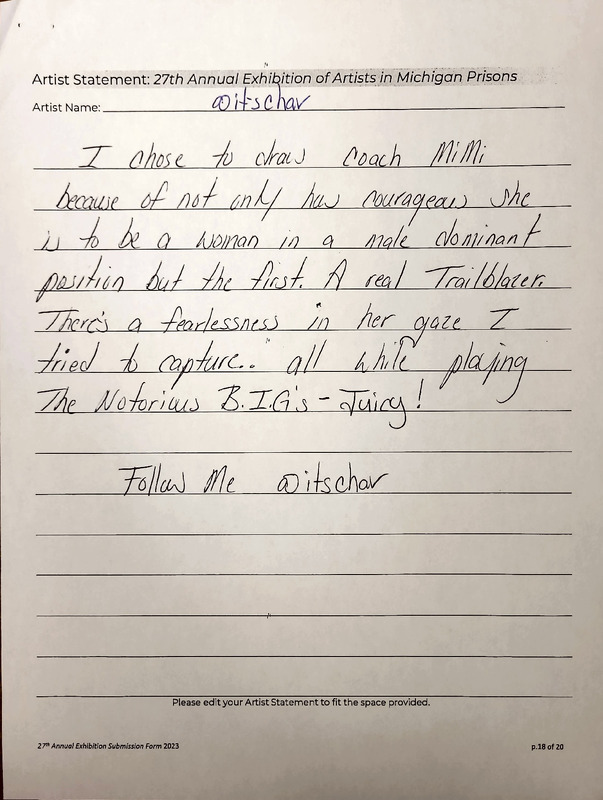 Artist Statement: 27th Annual Exhibition of Artists in Michigan Prisons
Artist Name: @itschav
I chose to draw Coach MiMi
because of not only how courageous she
is to be a woman in a male dominant
position but the first. A real Trailblazer.
There's a fearlessness in her gaze I
tried to capture.. all while playing
The Notorious B.I.G's - Juicy!
Follow Me @itschav
Please edit your Artist Statement to fit the space provided.
27th Annual Exhibition Submission Form 2023
p.18 of 20